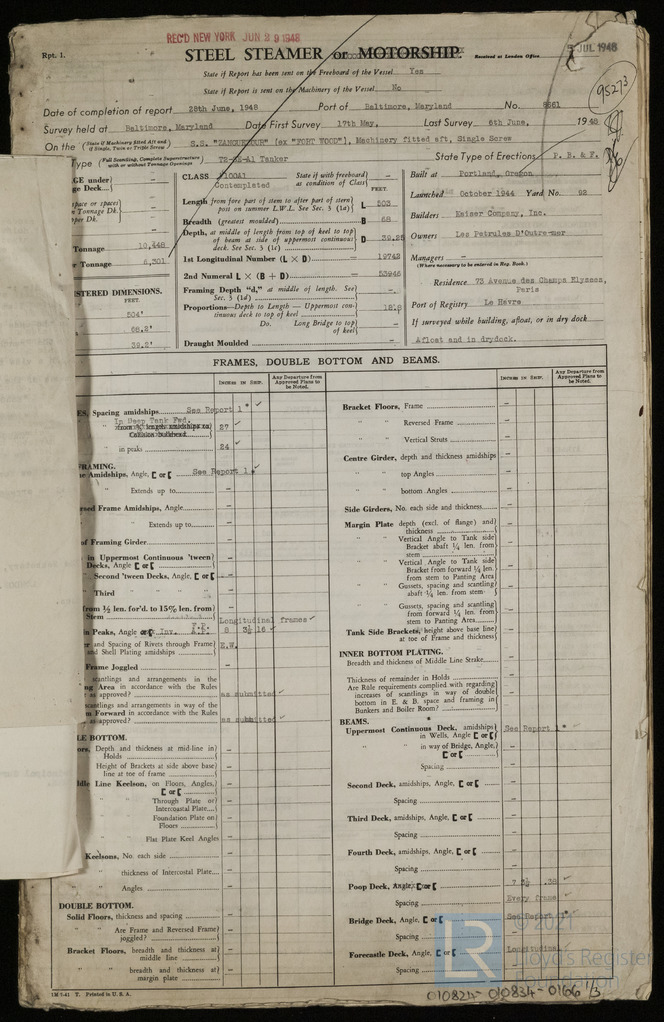 REC'D NEW YORK JUN 29 1948
Rpt. 1.
STEEL STEAMER or MOTORSHIP.
Received at London Office
5 JUL 1948
State if Report has been sent on the Freeboard of the Vessel Yes
State if Report is sent on the Machinery of the Vessel No
95273
Date of completion of report 28th June, 1948 Port of Baltimore, Maryland No. 8661
Survey held at Baltimore, Maryland Date First Survey 17th May, Last Survey 6th June, 1948
On the (State if Machinery fitted Aft and if Single, Twin or Triple Screw) S.S. "ZANGUETOUR" (ex "FORT WOOD"), Machinery fitted aft, Single Screw
Type (Full Scantling, Complete Superstructure with or without Tonnage Openings) T2-SE-A1 Tanker
State Type of Erections P. B. & F.
Tonnage 10,448
Tonnage 6,301
REGISTERED DIMENSIONS.
FEET.
504'
68.2'
39.2'
CLASS 100A1
Contemplated
State if with freeboard as condition of Class
FEET.
Length from fore part of stem to after part of stern post on summer L.W.L. See Sec. 3 (1a) L 503
Breadth (greatest moulded) B 68
Depth, at middle of length from top of keel to top of beam at side of uppermost continuous deck. See Sec. 3 (1c) D 39.25
1st Longitudinal Number (L × D) 19742
2nd Numeral L × (B + D) 53946
Framing Depth "d," at middle of length. See Sec. 3 (1d) –
Proportions—Depth to Length — Uppermost continuous deck to top of keel
Do. Long Bridge to top of keel –
Draught Moulded –
Built at Portland, Oregon
Launched October 1944 Yard No. 82
Builders Kaiser Company, Inc.
Owners Les Petroles D'Outre-mer
Managers –
(Where necessary to be entered in Reg. Book.)
Residence 73 Avenue des Champs Elysees, Paris
Port of Registry Le Havre
If surveyed while building, afloat, or in dry dock
Afloat and in drydock.
FRAMES, DOUBLE BOTTOM AND BEAMS.
INCHES IN SHIP.
Any Departure from Approved Plans to be Noted.
Spacing amidships See Report 1*
In Deep Tank Fwd. 27
in peaks 24
FRAMING.
Amidships, Angle, [ or [ See Report 1*
Extends up to –
Frame Amidships, Angle –
Extends up to –
of Framing Girder –
in Uppermost Continuous 'tween Decks, Angle [ or [ –
Second 'tween Decks, Angle, [ or [ –
Third –
from ½ len. for'd. to 15% len. from Stem Longitudinal frames
in Peaks, Angle or 8 3½ 16
and Spacing of Rivets through Frame and Shell Plating amidships E.W.
Frame Joggled –
scantlings and arrangements in the Area in accordance with the Rules as approved? as submitted
scantlings and arrangements in way of the Forward in accordance with the Rules as approved? as submitted
BOTTOM.
Depth and thickness at mid-line in Holds –
Height of Brackets at side above base line at toe of frame –
Line Keelson, on Floors, Angles, [ or [ –
Through Plate or Intercoastal Plate –
Foundation Plate on Floors –
Flat Plate Keel Angles –
Keelsons, No. each side –
thickness of Intercostal Plate –
Angles –
DOUBLE BOTTOM.
Solid Floors, thickness and spacing –
Are Frame and Reversed Frame joggled? –
Bracket Floors, breadth and thickness at middle line –
breadth and thickness at margin plate –
INCHES IN SHIP.
Any Departure from Approved Plans to be Noted.
Bracket Floors, Frame –
Reversed Frame –
Vertical Struts –
Centre Girder, depth and thickness amidships –
top Angles –
bottom Angles –
Side Girders, No. each side and thickness –
Margin Plate depth (excl. of flange) and thickness –
Vertical Angle to Tank side Bracket abaft ¼ len. from stem –
Vertical Angle to Tank side Bracket from forward ¼ len. from stem to Panting Area –
Gussets, spacing and scantling abaft ¼ len. from stem –
Gussets, spacing and scantling from forward ¼ len. from stem to Panting Area –
Tank Side Brackets, height above base line at toe of Frame and thickness –
INNER BOTTOM PLATING.
Breadth and thickness of Middle Line Strake –
Thickness of remainder in Holds –
Are Rule requirements complied with regarding increases of scantlings in way of double bottom in E. & B. space and framing in Bunkers and Boiler Room? –
BEAMS.
Uppermost Continuous Deck, amidships in Wells, Angle [ or [ See Report 1*
in way of Bridge, Angle, [ or [ –
Spacing –
Second Deck, amidships, Angle, [ or [ –
Spacing –
Third Deck, amidships, Angle, [ or [ –
Spacing –
Fourth Deck, amidships, Angle, [ or [ –
Spacing –
Poop Deck, Angle, [ or [ .38
Spacing Every frame
Bridge Deck, Angle, [ or [ See Report
Spacing
Forecastle Deck, Angle, [ or [ Longitudinal
Spacing –
1M-7-41 T. Printed in U.S.A.
LR
© 2021
Lloyd's Register
Foundation
010824-010834-0166 1/3